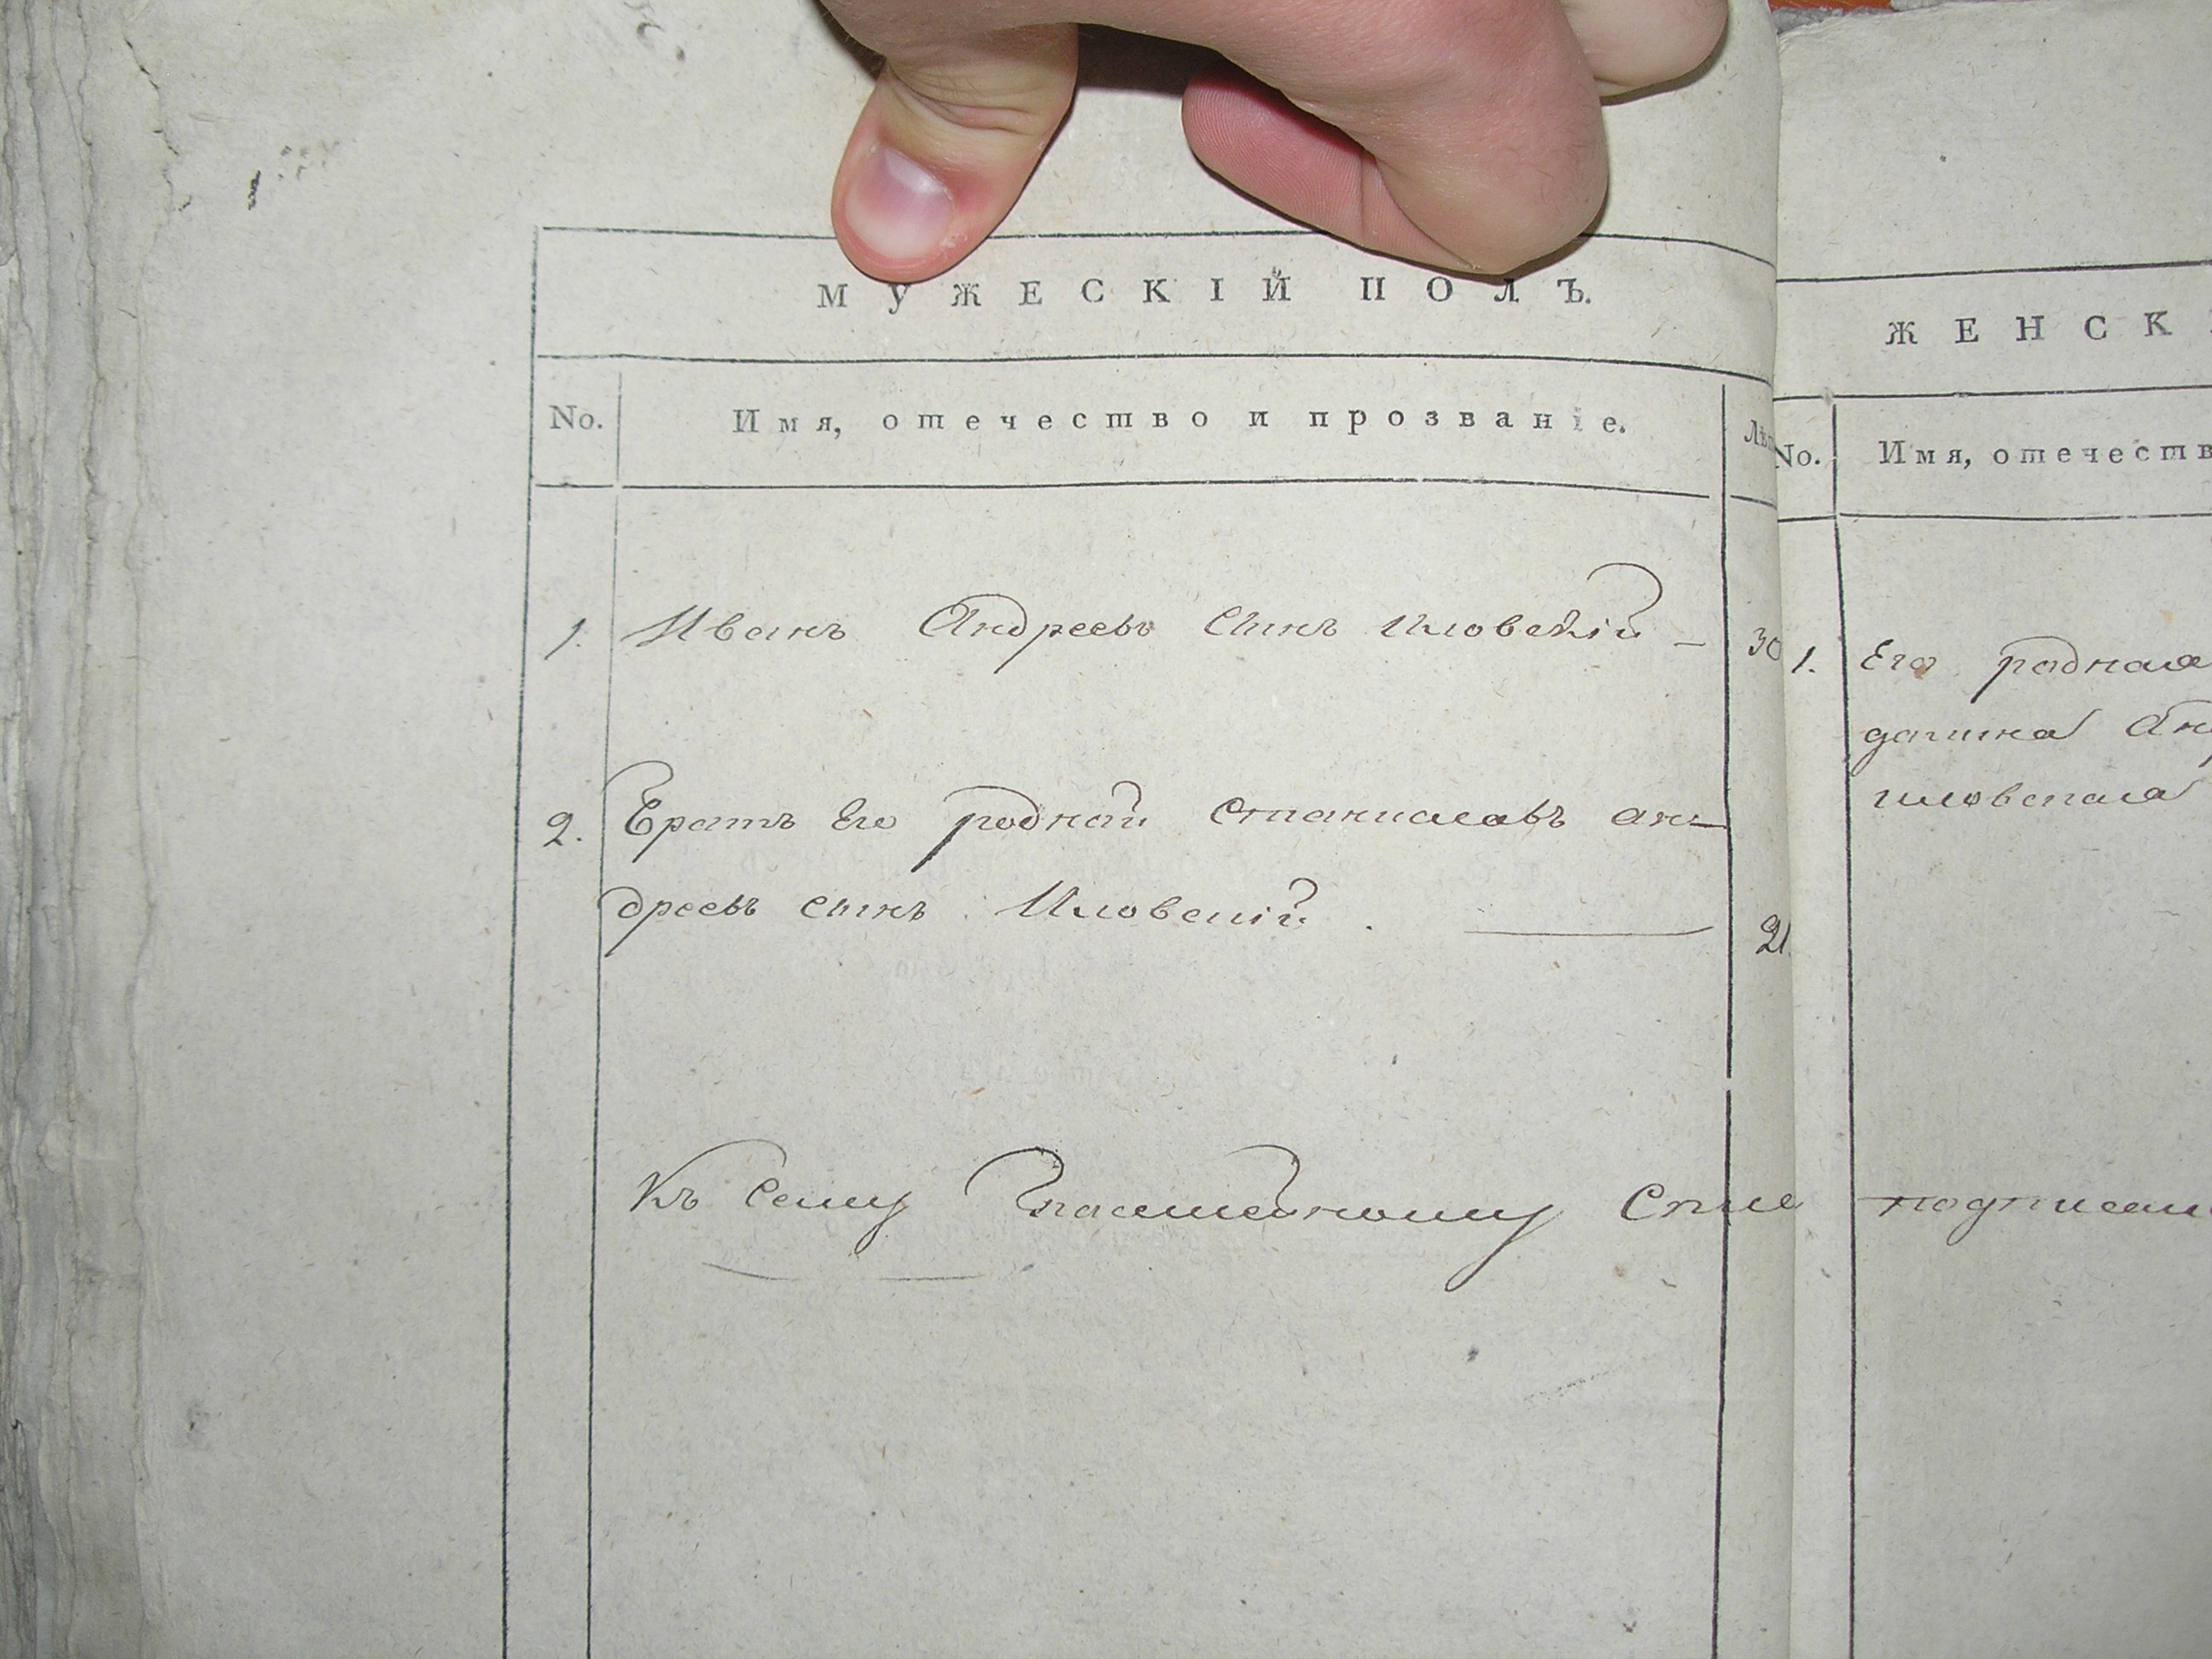 МУЖЕСКІЙ ПОЛЪ.
No. Имя, отечество и прозваніе.
1. Иванъ Андреевъ сынъ Иловскій — 30
2. Братъ Его родной Станиславъ Ан-
дреевъ сынъ Иловскій. — 21.
Къ сему
ЖЕНСК
No. Имя, отечеств
1. Его родная
Ан
иловская